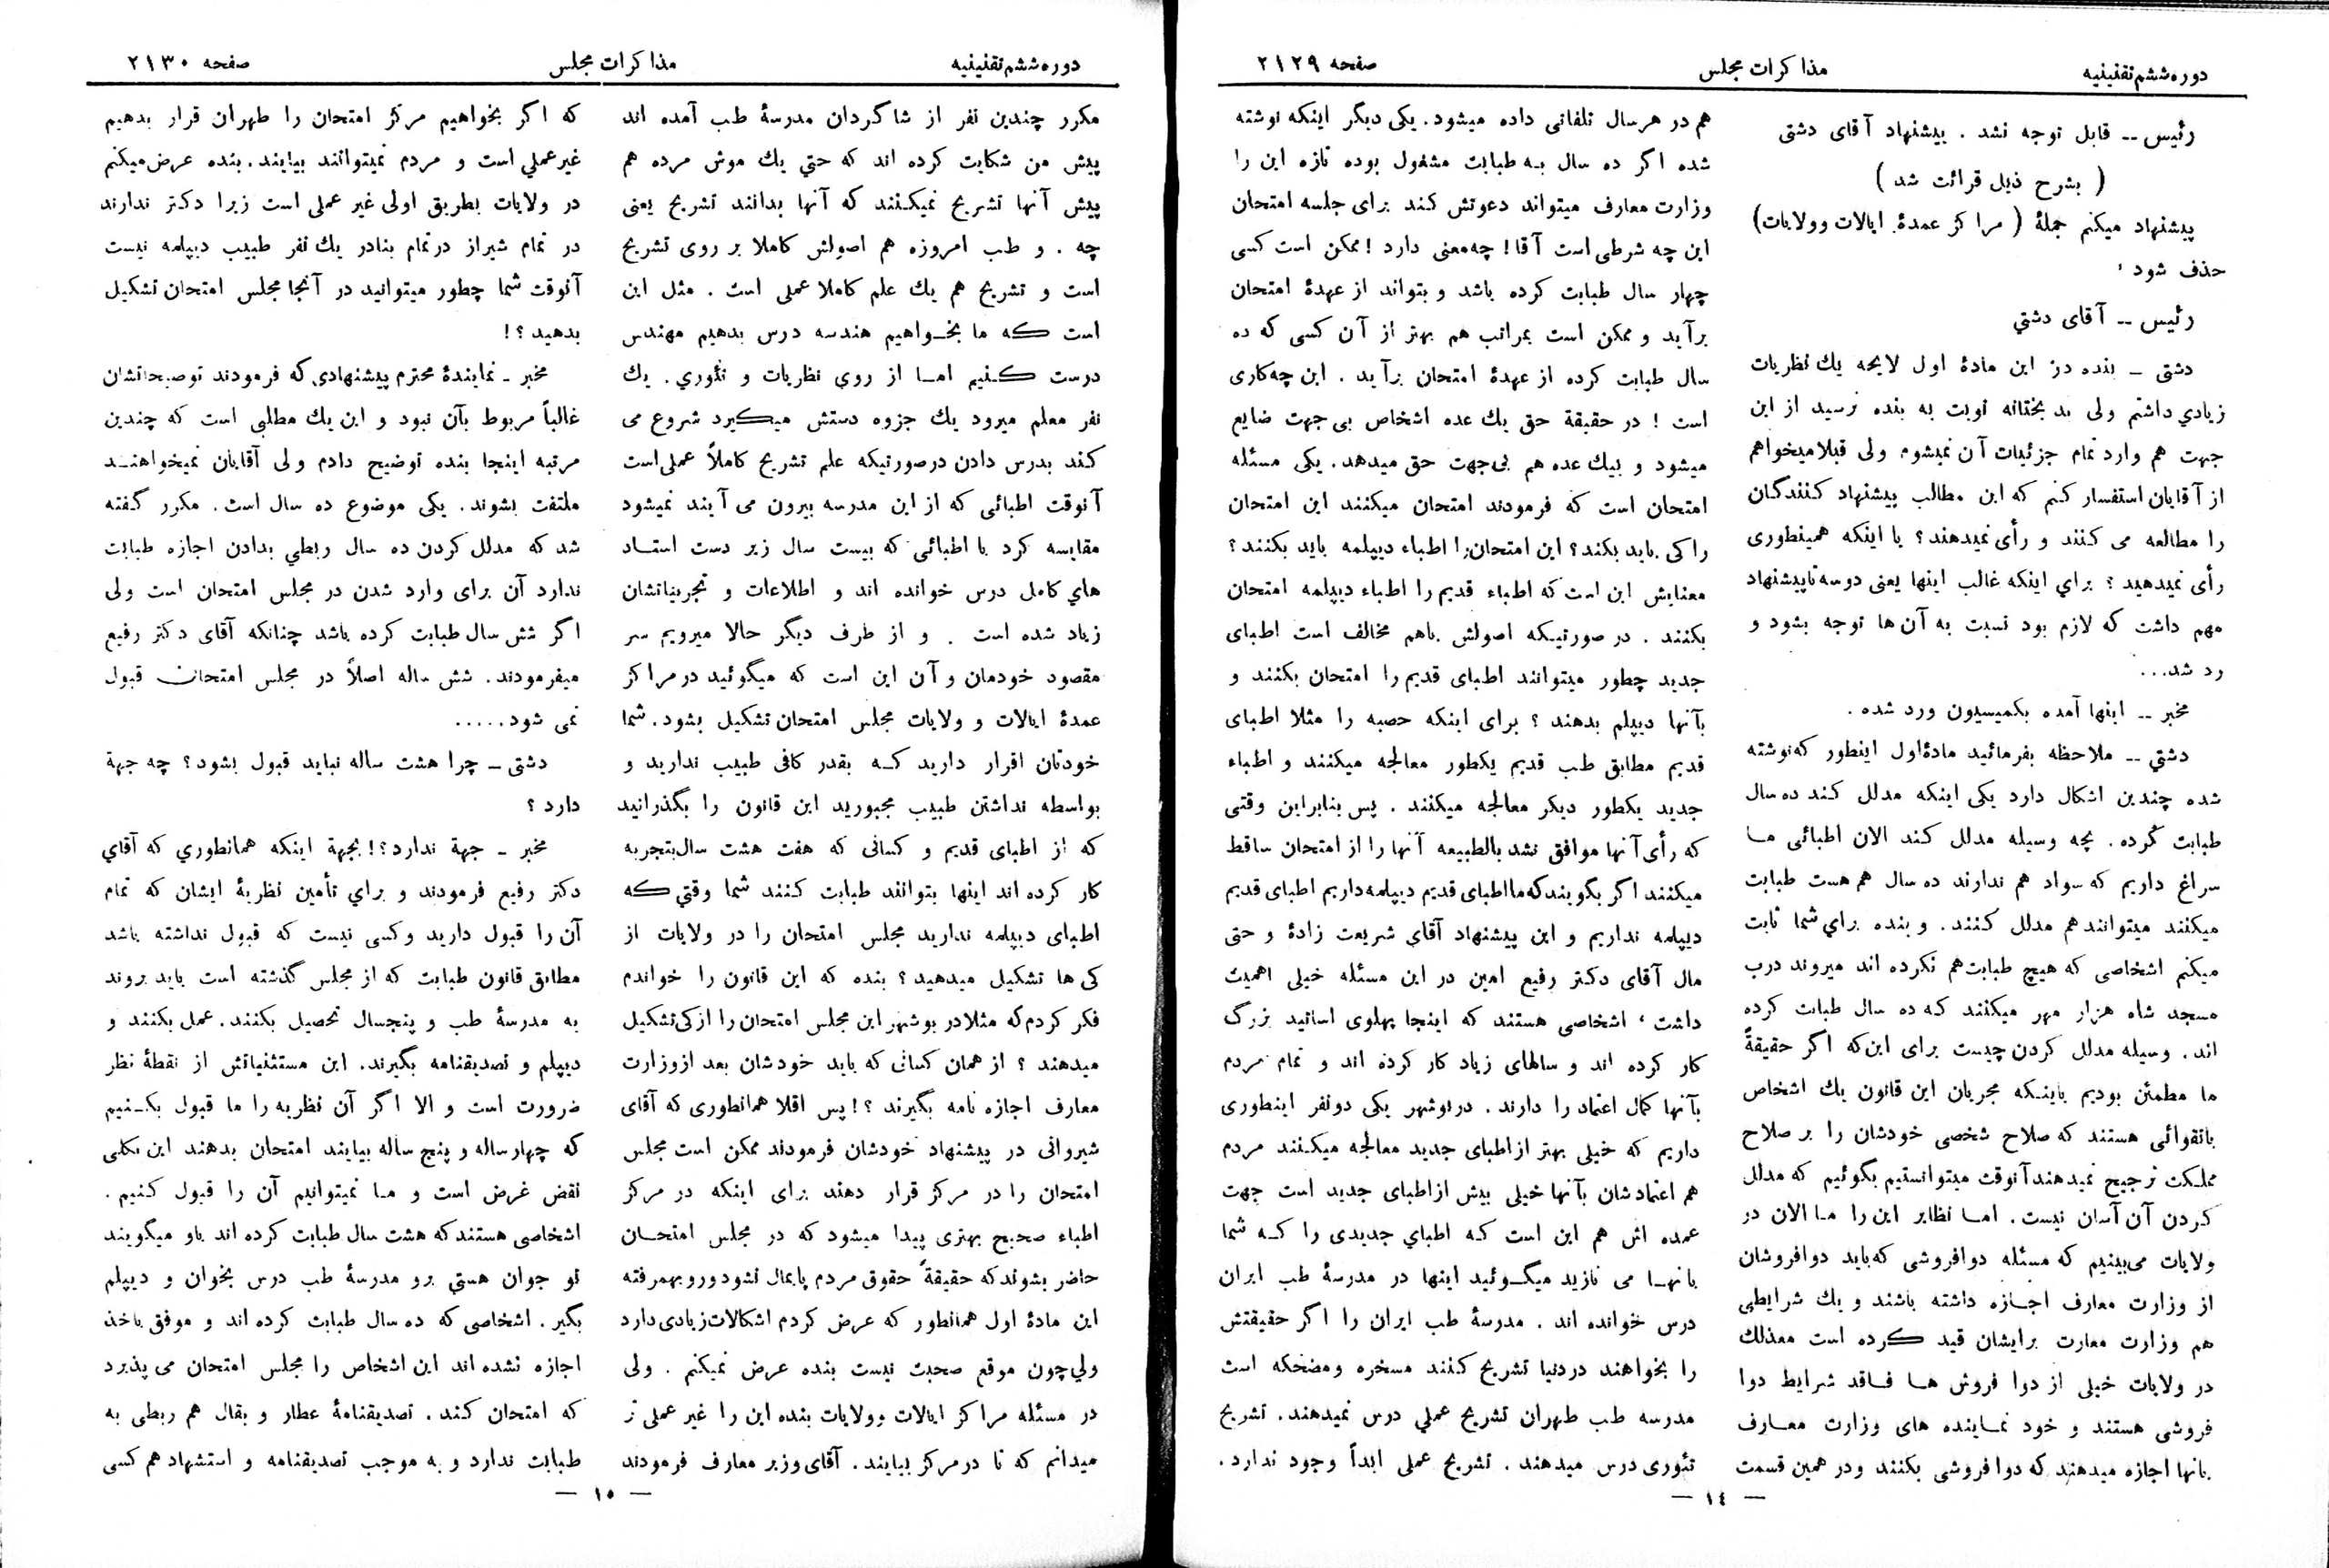 دوره ششم تقنینیه
مذاکرات مجلس
صفحه ۲۱۲۹
رئیس -- قابل توجه نشد . پیشنهاد آقای دشتی
( بشرح ذیل قرائت شد )
پیشنهاد میکنم جملهٔ ( مراکز عمدهٔ ایالات وولایات)
حذف شود ،
رئیس -- آقای دشتي
دشتی - بنده در این مادهٔ اول لایحه یك نظریات
زیادي داشتم ولی بد بختانه نوبت به بنده نرسید از این
جهت هم وارد تمام جزئیات آن نمیشوم ولی قبلا میخواهم
از آقایان استفسار کنم که این مطالب پیشنهاد کنندگان
را مطالعه می کنند و رأی نمیدهند؟ یا اینکه همینطوری
رأی نمیدهید ؟ براي اینکه غالب اینها یعنی دوسه تا پیشنهاد
مهم داشت که لازم بود نسبت به آن ها توجه بشود و
رد شد...
مخبر -- اینها آمده بکمیسیون ورد شده .
دشتي -- ملاحظه بفرمائید مادهٔ اول اینطور که نوشته
شده چندین اشکال دارد یکی اینکه مدلل کند ده سال
طبابت کرده . بچه وسیله مدلل کند الان اطبائی ما
سراغ داریم که سواد هم ندارند ده سال هم هست طبابت
میکنند میتوانند هم مدلل کنند . و بنده براي شما ثابت
میکنم اشخاصی که هیچ طبابت هم نکرده اند میروند درب
مسجد شاه هزار مهر میکنند که ده سال طبابت کرده
اند . وسیله مدلل کردن چیست برای این که اگر حقیقةً
ما مطمئن بودیم باینکه مجریان این قانون یك اشخاص
باتقوائی هستند که صلاح شخصی خودشان را بر صلاح
مملکت ترجیح نمیدهند آنوقت میتوانستیم بگوئیم که مدلل
کردن آن آسان نیست . اما نظایر این را ما الان در
ولایات می‌بینیم که مسئله دوافروشی که باید دوافروشان
از وزارت معارف اجازه داشته باشند و یك شرایطی
هم وزارت معارت برایشان قید کرده است معذلك
در ولایات خیلی از دوا فروش ها فاقد شرایط دوا
فروشی هستند و خود نماینده های وزارت معارف
بانها اجازه میدهند که دوا فروشی بکنند ودر همین قسمت
هم در هرسال تلفاتی داده میشود. یکی دیگر اینکه نوشته
شده اگر ده سال به طبابت مشغول بوده تازه این را
وزارت معارف میتواند دعوتش کند برای جلسه امتحان
این چه شرطی است آقا! چه معنی دارد! ممکن است کسی
چهار سال طبابت کرده باشد و بتواند از عهدهٔ امتحان
برآید و ممکن است بمراتب هم بهتر از آن کسی که ده
سال طبابت کرده از عهدهٔ امتحان برآید . این چه کاری
است ! در حقیقة حق یك عده اشخاص بی جهت ضایع
میشود و بیك عده هم بی‌جهت حق میدهد. یکی مسئله
امتحان است که فرمودند امتحان میکنند این امتحان
را کی باید بکند؟ این امتحان را اطباء دیپلمه باید بکنند؟
معنایش این است که اطباء قدیم را اطباء دیپلمه امتحان
بکنند . در صورتیکه اصولش باهم مخالف است اطبای
جدید چطور میتوانند اطبای قدیم را امتحان بکنند و
بآنها دیپلم بدهند ؟ برای اینکه حصبه را مثلا اطبای
قدیم مطابق طب قدیم یکطور معالجه میکنند و اطباء
جدید یکطور دیگر معالجه میکنند . پس بنابراین وقتی
که رأی آنها موافق نشد بالطبیعه آنها را از امتحان ساقط
میکنند اگر بگویند که ما اطبای قدیم دیپلمه داریم اطبای قدیم
دیپلمه نداریم و این پیشنهاد آقاي شریعت زادهٔ و حتی
مال آقای دکتر رفیع امین در این مسئله خیلی اهمیت
داشت ، اشخاصی هستند که اینجا پهلوی اساتید بزرگ
کار کرده اند و سالهای زیاد کار کرده اند و تمام مردم
بآنها کمال اعتماد را دارند . در بوشهر یکی دونفر اینطوری
داریم که خیلی بهتر از اطبای جدید معالجه میکنند مردم
هم اعتمادشان بآنها خیلی بیش از اطبای جدید است جهت
عمده اش هم این است که اطباي جدیدی را که شما
بانها می نازید میگوئید اینها در مدرسهٔ طب ایران
درس خوانده اند . مدرسهٔ طب ایران را اگر حقیقتش
را بخواهند دردنیا تشریح کنند مسخره ومضحکه است
مدرسه طب طهران تشریح عملي درس نمیدهند. تشریح
تئوری درس میدهند . تشریح عملی ابداً وجود ندارد.
— ١٤ —
دوره ششم تقنینیه
مذاکرات مجلس
صفحه ۲۱۳۰
مکرر چندین نفر از شاگردان مدرسهٔ طب آمده اند
پیش من شکایت کرده اند که حتي یك موش مرده هم
پیش آنها تشریح نمیکنند که آنها بدانند تشریح یعنی
چه . و طب امروزه هم اصولش کاملا بر روی تشریح
است و تشریح هم یك علم کاملا عملی است . مثل این
است که ما بخواهیم هندسه درس بدهیم مهندس
درست کنیم اما از روي نظریات و تئوري. یك
نفر معلم میرود یك جزوه دستش میگیرد شروع می
کند بدرس دادن درصورتیکه علم تشریح کاملاً عملی است
آنوقت اطبائی که از این مدرسه بیرون می آیند نمیشود
مقایسه کرد با اطبائی که بیست سال زیر دست استاد
هاي کامل درس خوانده اند و اطلاعات و تجربیاتشان
زیاد شده است . و از طرف دیگر حالا میرویم سر
مقصود خودمان و آن این است که میگوئید در مراکز
عمدهٔ ایالات و ولایات مجلس امتحان تشکیل بشود . شما
خودتان اقرار دارید که بقدر کافی طبیب ندارید و
بواسطه نداشتن طبیب مجبورید این قانون را بگذرانید
که از اطبای قدیم و کسانی که هفت هشت سال بتجربه
کار کرده اند اینها بتوانند طبابت کنند شما وقتي که
اطبای دیپلمه ندارید مجلس امتحان را در ولایات از
کی ها تشکیل میدهید ؟ بنده که این قانون را خواندم
فکر کردم که مثلا در بوشهر این مجلس امتحان را از کی تشکیل
میدهند ؟ از همان کسانی که باید خودشان بعد از وزارت
معارف اجازه نامه بگیرند ؟! پس اقلا همانطوری که آقای
شیروانی در پیشنهاد خودشان فرمودند ممکن است مجلس
امتحان را در مرکز قرار دهند برای اینکه در مرکز
اطباء صحیح بهتری پیدا میشود که در مجلس امتحان
حاضر بشوند که حقیقةً حقوق مردم پایمال نشود و رویهمرفته
این مادهٔ اول همانطور که عرض کردم اشکالات زیادی دارد
ولی چون موقع صحبت نیست بنده عرض نمیکنم . ولی
در مسئله مراکز ایالات وولایات بنده این را غیر عملی تر
میدانم که تا در مرکز بیایند . آقای وزیر معارف فرمودند
که اگر بخواهیم مرکز امتحان را طهران قرار بدهیم
غیرعملي است و مردم نمیتوانند بیایند. بنده عرض میکنم
در ولایات بطریق اولی غیر عملی است زیرا دکتر ندارند
در تمام شیراز درتمام بنادر یك نفر طبیب دیپلمه نیست
آنوقت شما چطور میتوانید در آنجا مجلس امتحان تشکیل
بدهید ؟ !
مخبر - نمایندهٔ محترم پیشنهادي که فرمودند توضیحاتشان
غالباً مربوط بآن نبود و این یك مطلبی است که چندین
مرتبه اینجا بنده توضیح دادم ولی آقایان نمیخواهند
ملتفت بشوند. یکی موضوع ده سال است. مکرر گفته
شد که مدلل کردن ده سال ربطي بدادن اجازه طبابت
ندارد آن برای وارد شدن در مجلس امتحان است ولی
اگر شش سال طبابت کرده باشد چنانکه آقای دکتر رفیع
میفرمودند. شش ساله اصلاً در مجلس امتحان قبول
نمی شود.....
دشتی - چرا هشت ساله نباید قبول بشود؟ چه جهة
دارد ؟
مخبر - جهة ندارد؟! بجهة اینکه همانطوري که آقاي
دکتر رفیع فرمودند و براي تأمین نظریهٔ ایشان که تمام
آن را قبول دارید وکسی نیست که قبول نداشته باشد
مطابق قانون طبابت که از مجلس گذشته است باید بروند
به مدرسهٔ طب و پنجسال تحصیل بکنند. عمل بکنند و
دیپلم و تصدیقنامه بگیرند. این مستثنیاتش از نقطهٔ نظر
ضرورت است و الا اگر آن نظریه را ما قبول بکنیم
که چهار ساله و پنج ساله بیایند امتحان بدهند این بکلی
نقض غرض است و ما نمیتوانیم آن را قبول کنیم .
اشخاصی هستند که هشت سال طبابت کرده اند باو میگویند
تو جوان هستي برو مدرسهٔ طب درس بخوان و دیپلم
بگیر . اشخاصی که ده سال طبابت کرده اند و موفق باخذ
اجازه نشده اند این اشخاص را مجلس امتحان می پذیرد
که امتحان کند . تصدیقنامهٔ عطار و بقال هم ربطی به
طبابت ندارد و به موجب تصدیقنامه و استشهاد هم کسی
— ١٥ —